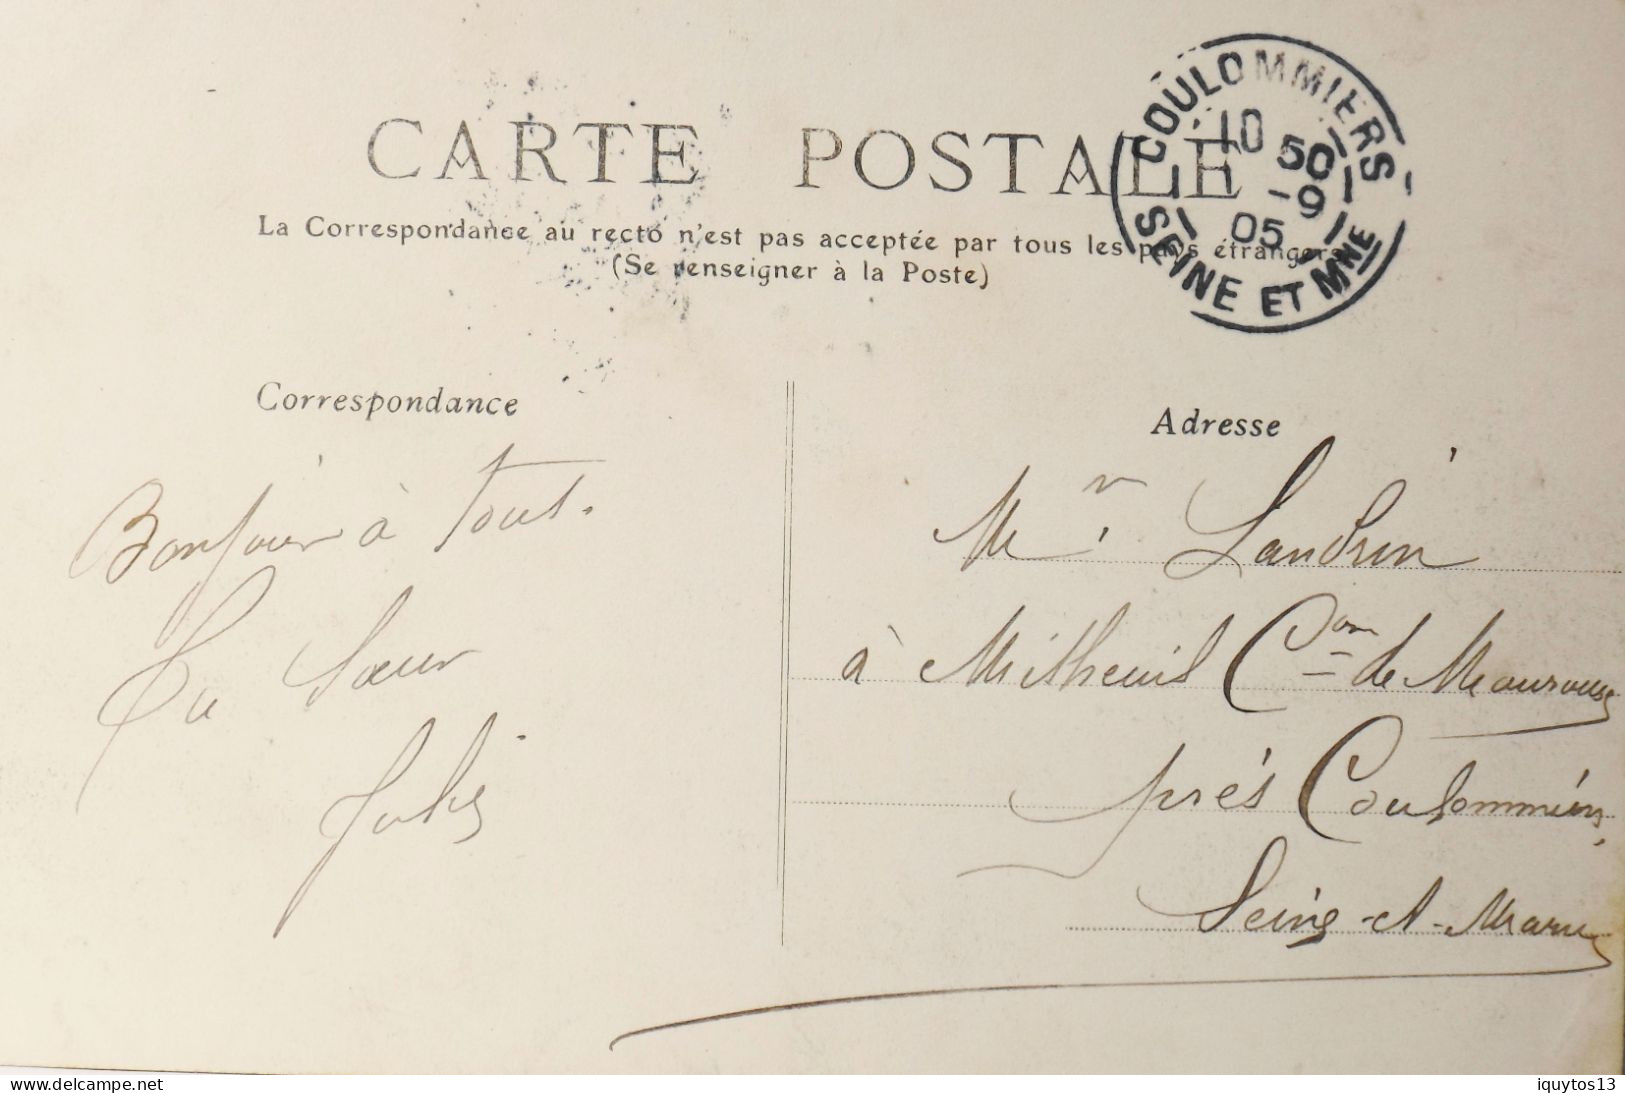 CARTE POSTALE
La Correspondance au recto n'est pas acceptée par tous les pays étrangers
(Se renseigner à la Poste)
COULOMMIERS
10 50
-9
05
SEINE ET MNE
Correspondance
Bonjour à tous.
Ta Sœur
Julie
Adresse
Mr Landrin
à Mitheuil Con de Mauroux
près Coulommiers,
Seine-et-Marne
www.delcampe.net
iquytos13